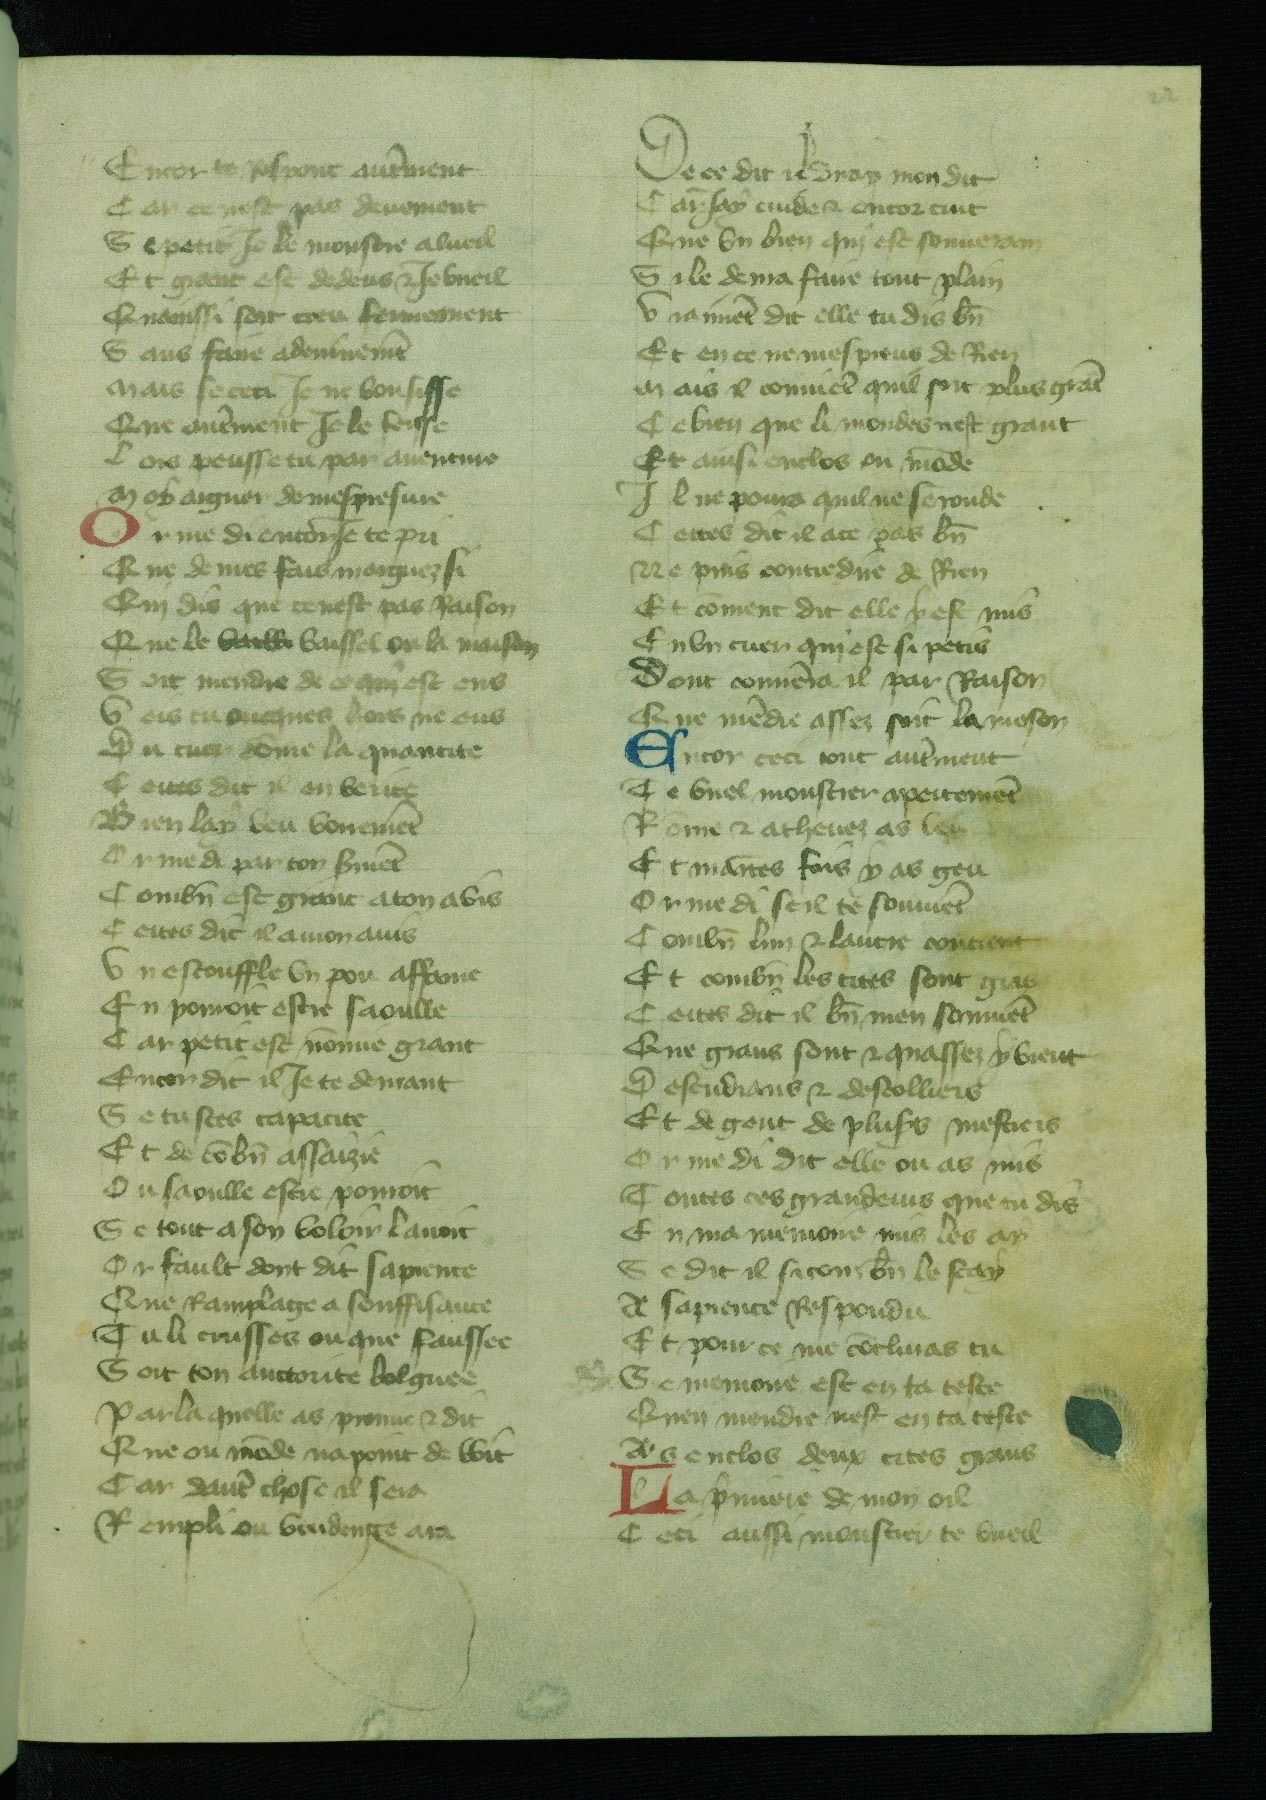 Encor te respont aut̄ment
Car ce nest pas deuement
Se petit Je le monstre a lueil
Et grant est dedens ⁊ Je vueil
Quainssi soit creu fermement
Sans faire adeuinemēt
Mais se ceci Je ne vousisse
Que aut̄ment Je le feisse
Lors peusse tu par auenture
Mob aiguer de mespresure
Or me di encor Je te pri
Que de mes fais marguez si
Qui dis que ce nest pas Raison
Que le vaissel ou la maison
Soit mendre de ce qui est ens
Veis tu oncques lors ne ens
Du cuer dome la quantite
Certes dit il en verite
Bien lay veu vonemēt
Or me di par ton s̄mēt
Combn̄ est grant a ton avis
Certes dit il a mon auis
Vn escouffle vn pou affame
En pourroit estre saoulle
Car petit est nōmie grant
Encor dit il Je te demant
Se tu sces capacite
Et de cōbn̄ assaizie
Ou saoulle estre pourroit
Se tout a son voloir lauoit
Or fault dont dit sapience
Que Ramplage a souffisance
Tu li truisses ou que faussee
Soit ton auctorite bolguee
Par la quelle as prouue ⁊ dit
Que ou mōde na point de wit
Car daut̄ chose il sera
Rempli ou vendenge ara
De ce dit il vray mon dit
Car Jay cuide ⁊ encor cuit
Que vn bien qui est souuerain
Sile dema faire tout plain
Vraimēt dit elle tu dis bn̄
Et en ce ne mesprens de Rien
Mais il conuiēt quil soit plus grāt
Ce bien que li mondes nest grant
Et ainsi enclos ou mōde
Il ne pourra quil ne seronde
Certes dit il a ce pas bn̄
Ne puis contredire de Rien
Et cōment dit elle y est mis
En vn cuer qui est si petis
Dont conuēra il par Raison
Que mēdre assez soit la meson
Encor ceci tout aut̄ment
Te vuel monstrer apertemēt
Rōme ⁊ athenez as veu
Et maītes fois y as geu
Or me di se il te souuiēt
Combn̄ lun ⁊ lautre contient
Et combn̄ les cites sont grās
Certes dit il bn̄ men souuiēt
Que grans sont ⁊ quassez y vient
Descudians ⁊ descolliers
Et de gent de plus̄s mestiers
Or me di dit elle ou as mis
Toutes ces grandeurs que tu dis
En ma memoire mis les ay
Se dit il si com bn̄ le scay
A sapience Respondu
Et pour ce me cōcluras tu
Se memoire est en ta teste
Quen mendre nest en ta teste
As enclos deux cites grans
La p̄miere de mon oil
Ceci aussi monstrer te vueil